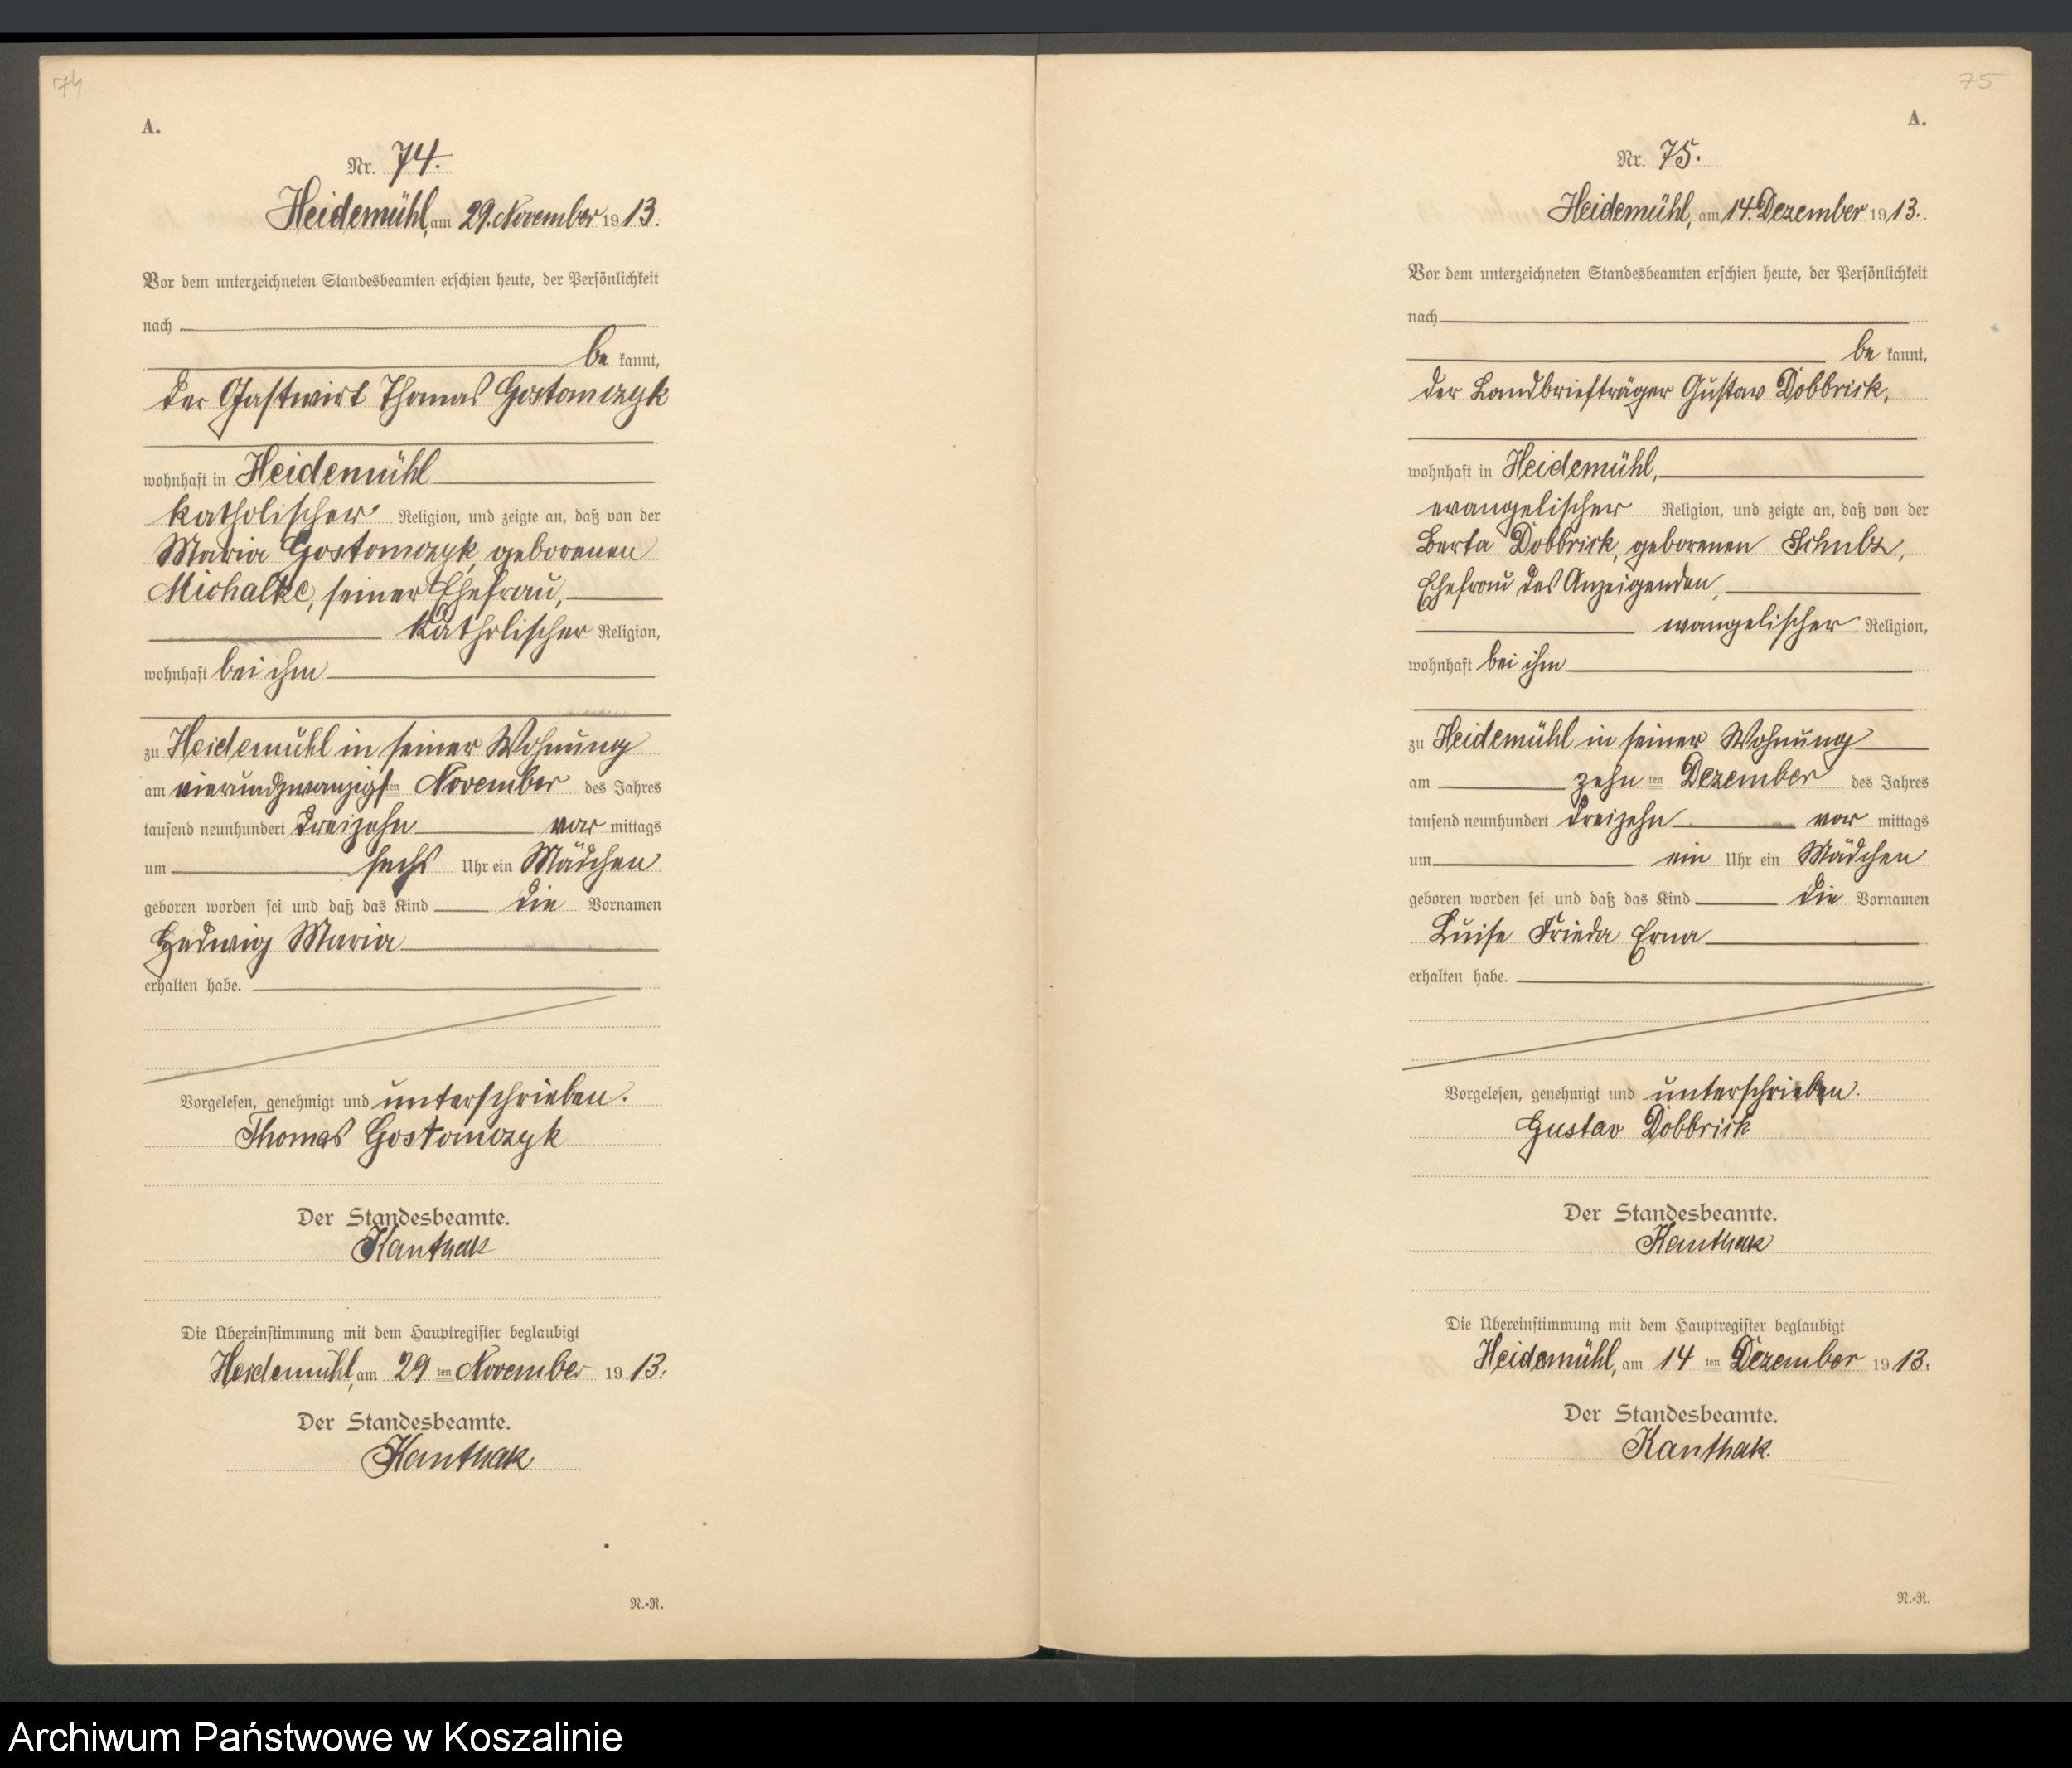 74
A.
Nr. 74.
Heidemühl, am 29. November 1913.
Vor dem unterzeichneten Standesbeamten erschien heute, der Persönlichkeit
nach
be kannt,
der Gastwirt Thomas Gostomczyk
wohnhaft in Heidemühl
katholischer Religion, und zeigte an, daß von der
Maria Gostomczyk, geborenen
Michalke, seiner Ehefrau,
katholischer Religion,
wohnhaft bei ihm
zu Heidemühl in seiner Wohnung
am vierundzwanzigsten November des Jahres
tausend neunhundert dreizehn vor mittags
um sechs Uhr ein Mädchen
geboren worden sei und daß das Kind die Vornamen
Hedwig Maria
erhalten habe.
Vorgelesen, genehmigt und unterschrieben.
Thomas Gostomczyk
Der Standesbeamte.
Kanthak
Die Übereinstimmung mit dem Hauptregister beglaubigt
Heidemühl, am 29 ten November 1913.
Der Standesbeamte.
Kanthak
N.-R.
75
A.
Nr. 75.
Heidemühl, am 14. Dezember 1913.
Vor dem unterzeichneten Standesbeamten erschien heute, der Persönlichkeit
nach
be kannt,
der Landbriefträger Gustav Dobbrick,
wohnhaft in Heidemühl,
evangelischer Religion, und zeigte an, daß von der
Berta Dobbrick, geborenen Schulz,
Ehefrau des Anzeigenden,
evangelischer Religion,
wohnhaft bei ihm
zu Heidemühl in seiner Wohnung
am zehn ten Dezember des Jahres
tausend neunhundert dreizehn vor mittags
um ein Uhr ein Mädchen
geboren worden sei und daß das Kind die Vornamen
Luise Frieda Erna
erhalten habe.
Vorgelesen, genehmigt und unterschrieben.
Gustav Dobbrick
Der Standesbeamte.
Kanthak
Die Übereinstimmung mit dem Hauptregister beglaubigt
Heidemühl, am 14 ten Dezember 1913.
Der Standesbeamte.
Kanthak.
N.-R.
Archiwum Państwowe w Koszalinie